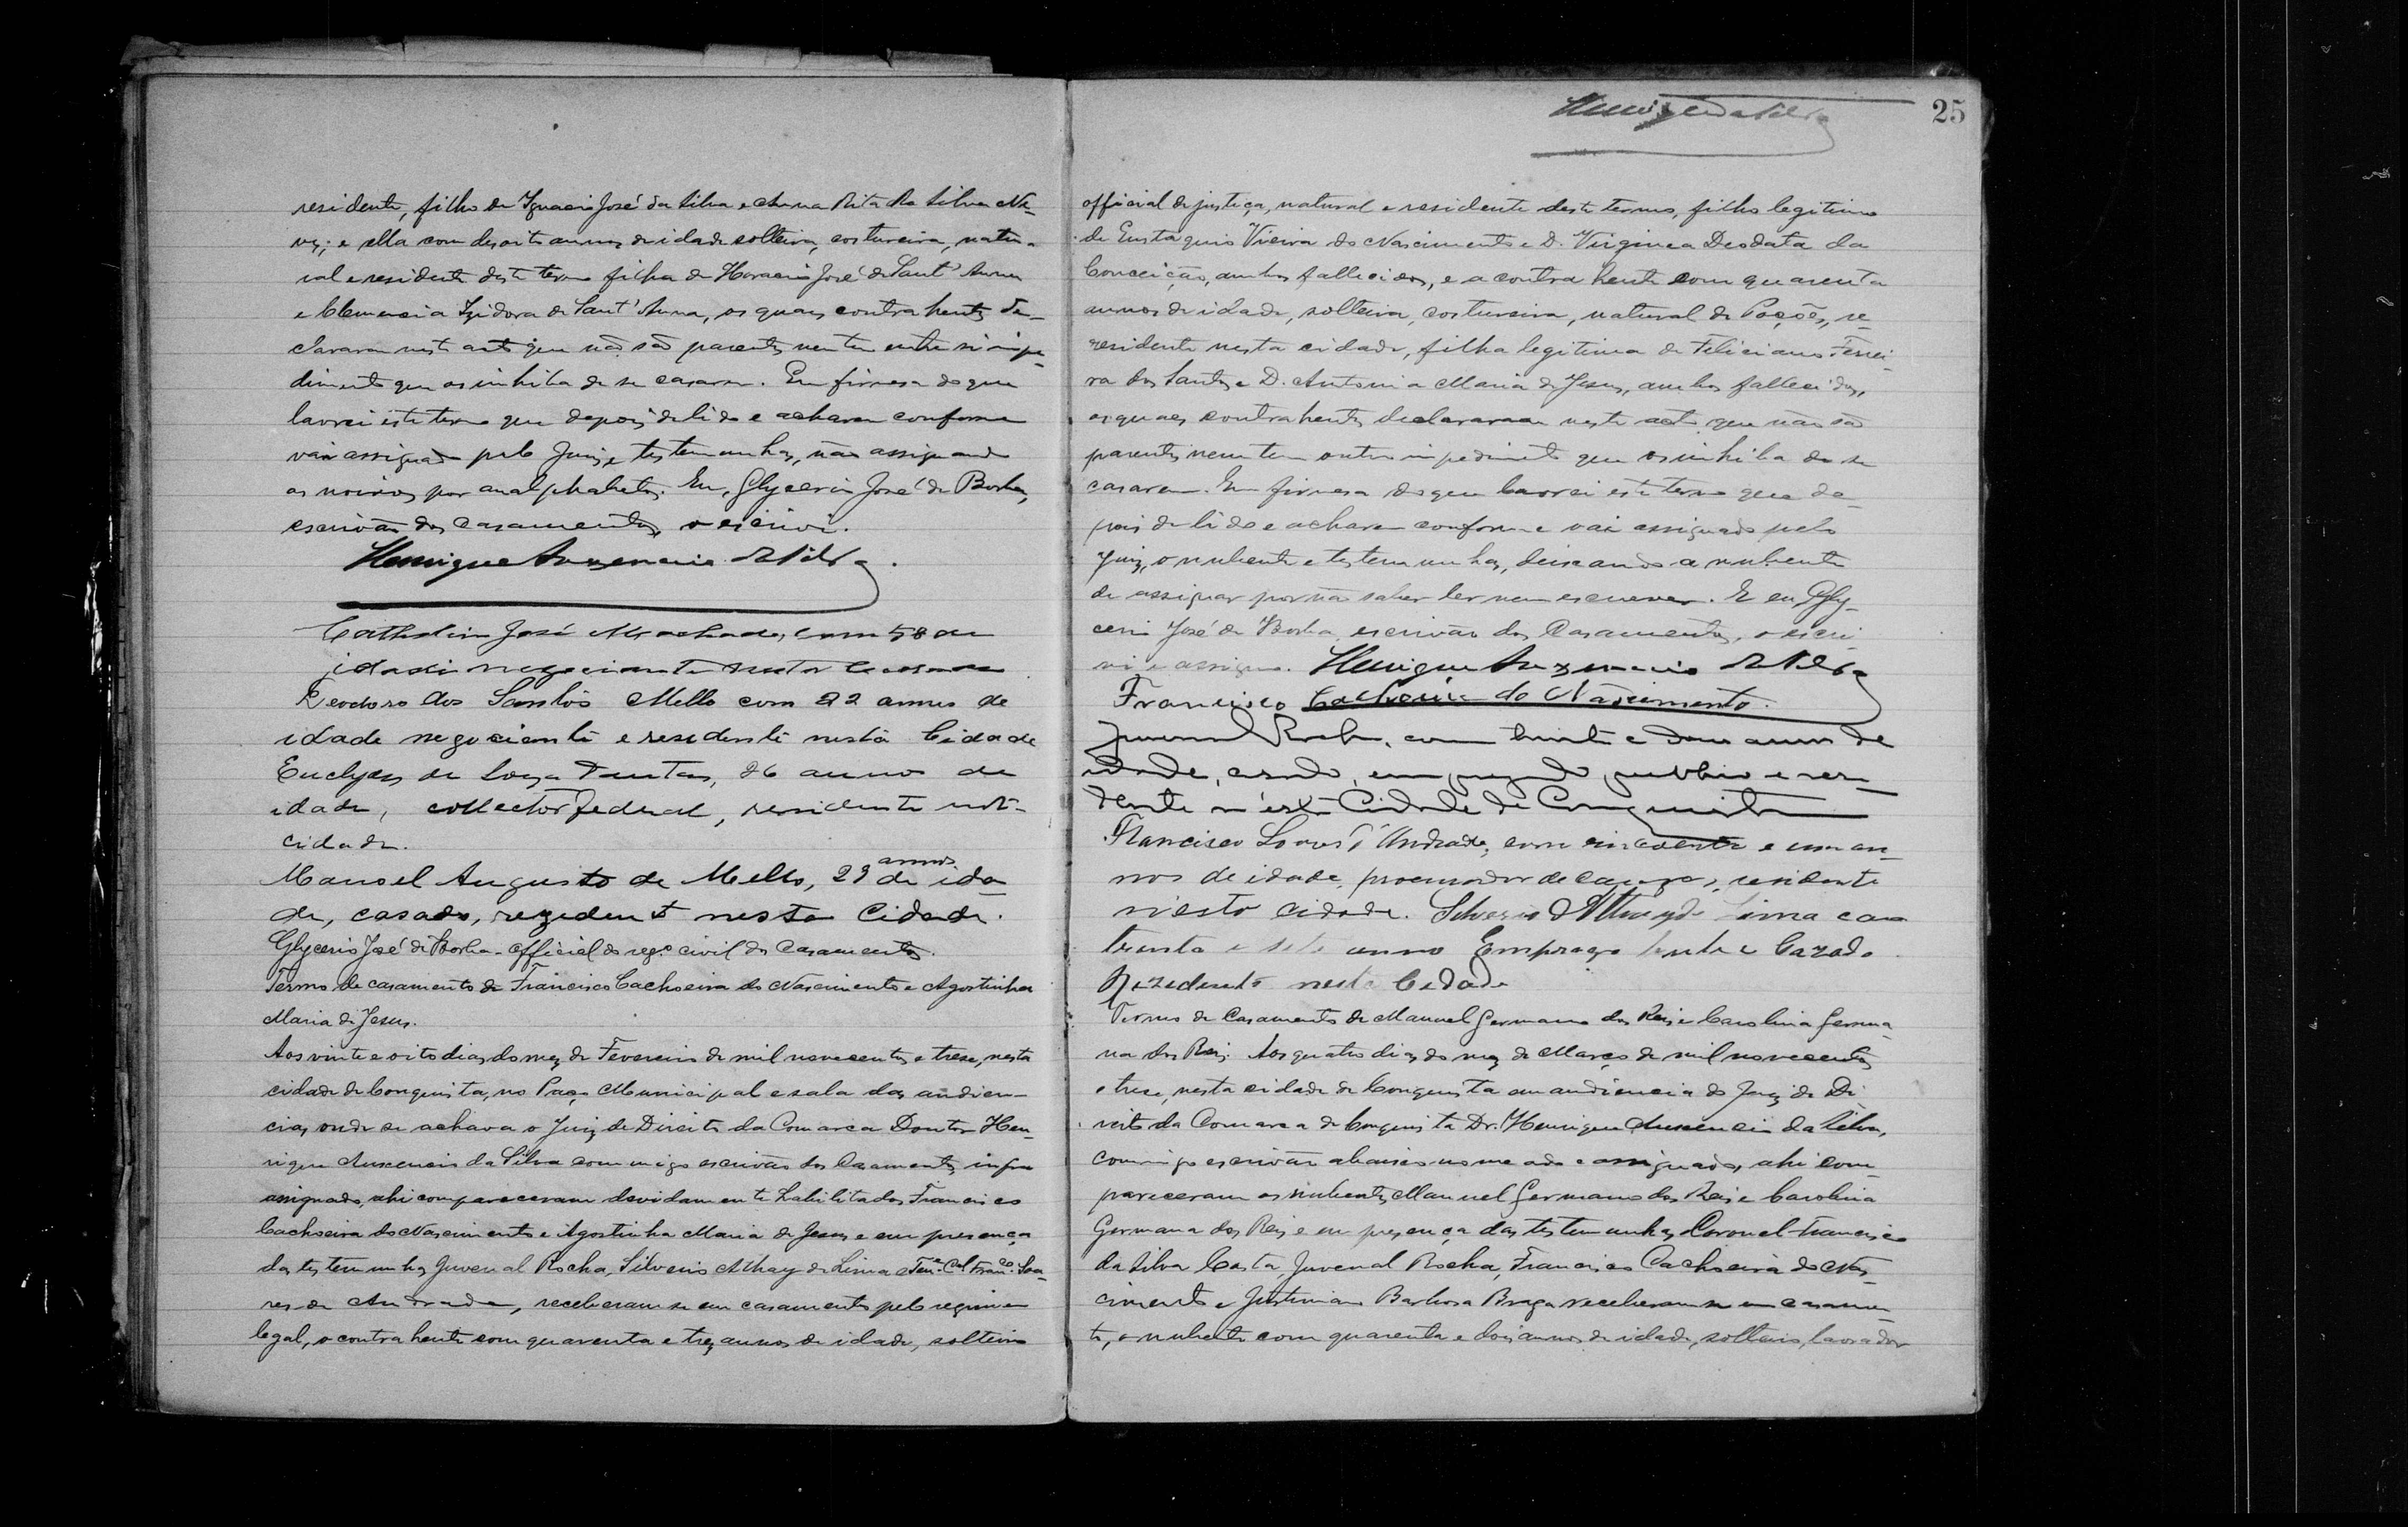 residente, filho de Ignacio José da Silva e Anna Rita da Silva Ne-
ves; e ella com desoito annos de idade solteira, costureira, natu-
ral e residente deste termo filha de Horacio José de Sant'Anna
e Clemencia Izidora de Sant'Anna, os quaes contrahentes de-
clararam neste acto que não são parentes nem tem entre si impe-
dimento que os inhiba de se casarem. Em firmesa do que
lavrei este termo que depois de lido e acharem conforme
vai assignado pelo Juiz e testemunhas, não assignando
os noivos por analphabetos. Eu, Glycerio José de Borba,
escrivão dos casamentos o escrivi.
Henrique Auxencio da Silva.
José Machado, com 58 de
idade negociante nesta
Leodoro dos Santos Mello com 22 annos de
idade negociante e residente nesta Cidade
Euclyes de Souza Dantas, 26 annos de
idade, collector federal, residente nes-
cidade.
Manoel Augusto de Mello, 29 annos de ida
de, casado, rezedent nesta Cidade.
Glycerio José de Borba - Official do reg.o civil dos Casamentos.
Termo de casamento de Francisco Cachoeira do Nascimento e Agostinha
Maria de Jesus.
Aos vinte e oito dias do mez de Fevereiro de mil novecentos e trese, nesta
cidade de Conquista, no Paço Municipal e sala das audien-
cias onde se achava o Juiz de Direito da Comarca Doutor Hen-
rique Auxencio da Silva commigo escrivão dos Casamentos infra
assignado, ahi compareceram devidamente habilitados Francisco
Cachoeira do Nascimento e Agostinha Maria de Jesus e em presença
das testemunhas Juvenal Rocha, Silverio Athay de Lima e Ten.e C.el Fran.co Soa-
res de Andrade, receberam-se em casamento pelo regimen
legal, o contrahente com quarenta e trez annos de idade, solteiro
25
Henrique da Silva
official de justiça, natural e residente deste termo, filho legitimo
de Eustaquio Vieira do Nascimento e D. Virginea Deodata da
Conceição, ambos fallecidos, e a contrahente com quarenta
annos de idade, solteira, costureira, natural de Poções, re-
residente nesta cidade, filha legitima de Feliciano Ferrei-
ra dos Santos e D. Antonia Maria de Jesus, ambos fallecidos,
os quaes contrahentes declararam neste acto que não são
parentes nem tem outro impedimento que os inhiba de se
casarem. Em firmesa do que lavrei este termo que de-
pois de lido e acharem conforme vai assignado pelo
Juiz, o nubente e testemunhas, deixando a nubente
de assignar por não saber ler nem escrever. E eu Gly-
cerio José de Borba, escrivão dos Casamentos, o escri-
vi e assigno. Henrique Auxencio da Silva
Francisco Cachoeira do Nascimento.
Juvenal Rocha, com trinta e dous annos de
idade, casado, empregado publico e resi-
dente n'esta Cidade de Conquista
Francisco Soares d'Andrade, com cincoenta e um an-
nos de idade, procurador de causas, residente
n'esta cidade. Silverio Athayde Lima com
trenta e sete anno Casado
Rezedente nesta Cedade
Termo de Casamento de Manuel Germano dos Reis e Carolina Germa-
na dos Reis. Aos quatro dias do mez de Março de mil novecentos
e trese, nesta cidade de Conquista em audiencia do Juiz de Di-
reito da Comarca de Conquista Dr. Henrique Auxencio da Silva,
commigo escrivão abaixo nomeado e assignado, ahi com-
pareceram os nubentes Manuel Germano dos Reis e Carolina
Germana dos Reis e em presença das testemunhas Coronel Francisco
da Silva Costa, Juvenal Rocha, Francisco Cachoeira do Nas-
cimento e Justiniano Barbosa Braga receberam-se em casamen-
to, o nubente com quarenta e dois annos de idade, solteiro, lavrador